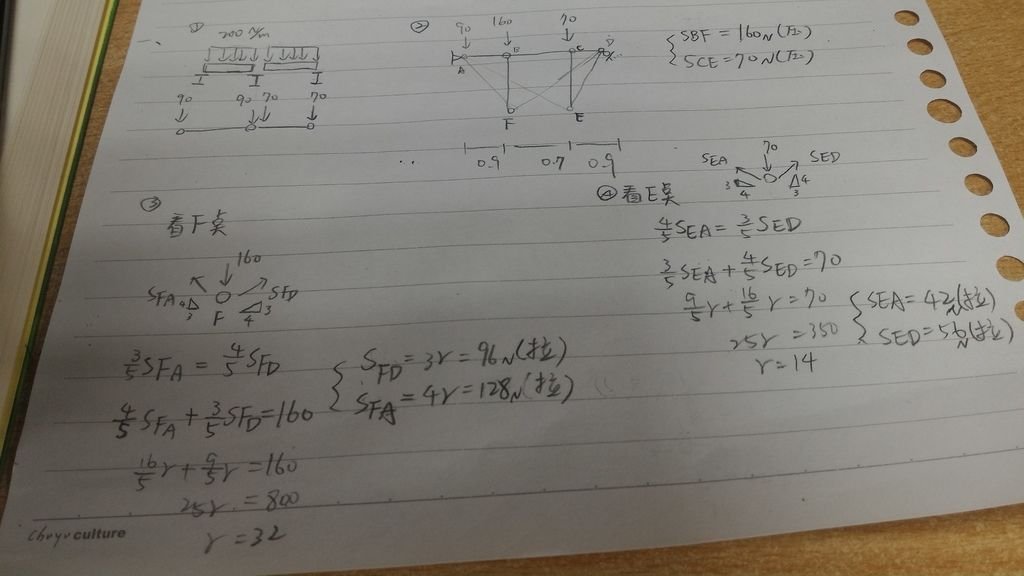 ①
200 N/m
90 90 70 70
②
90 160 70
A B C D
F E
0.9 0.7 0.9
{ SBF = 160N(压)
SCE = 70N(压)
③
看F桌
160
SFA SFD
4 3 4 3
F
3/5 SFA = 4/5 SFD
4/5 SFA + 3/5 SFD = 160
16/5 r + 9/5 r = 160
25r = 800
r = 32
{ SFD = 3r = 96N(拉)
SFA = 4r = 128N(拉)
④ 看E桌
70
SEA SED
3 4 3 4
4/5 SEA = 3/5 SED
3/5 SEA + 4/5 SED = 70
9/5 r + 16/5 r = 70
25r = 350
r = 14
{ SEA = 42N(拉)
SED = 56N(拉)
Chuyu culture